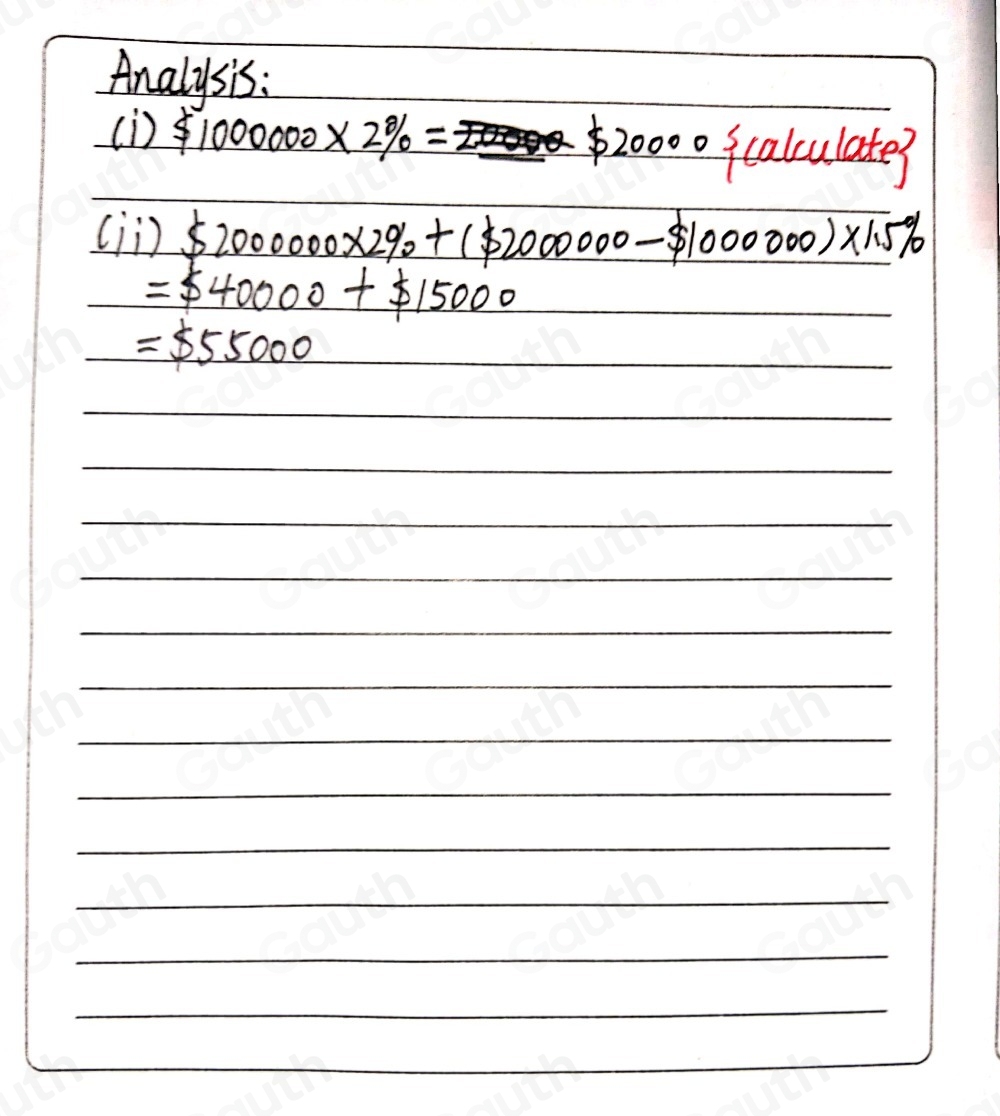 Analysis:
(i) $1000000 × 2% = $20000 {calculate}
(ii) $2000000×2%+($2000000-$1000000)×1.5%
=$40000 + $15000
=$55000